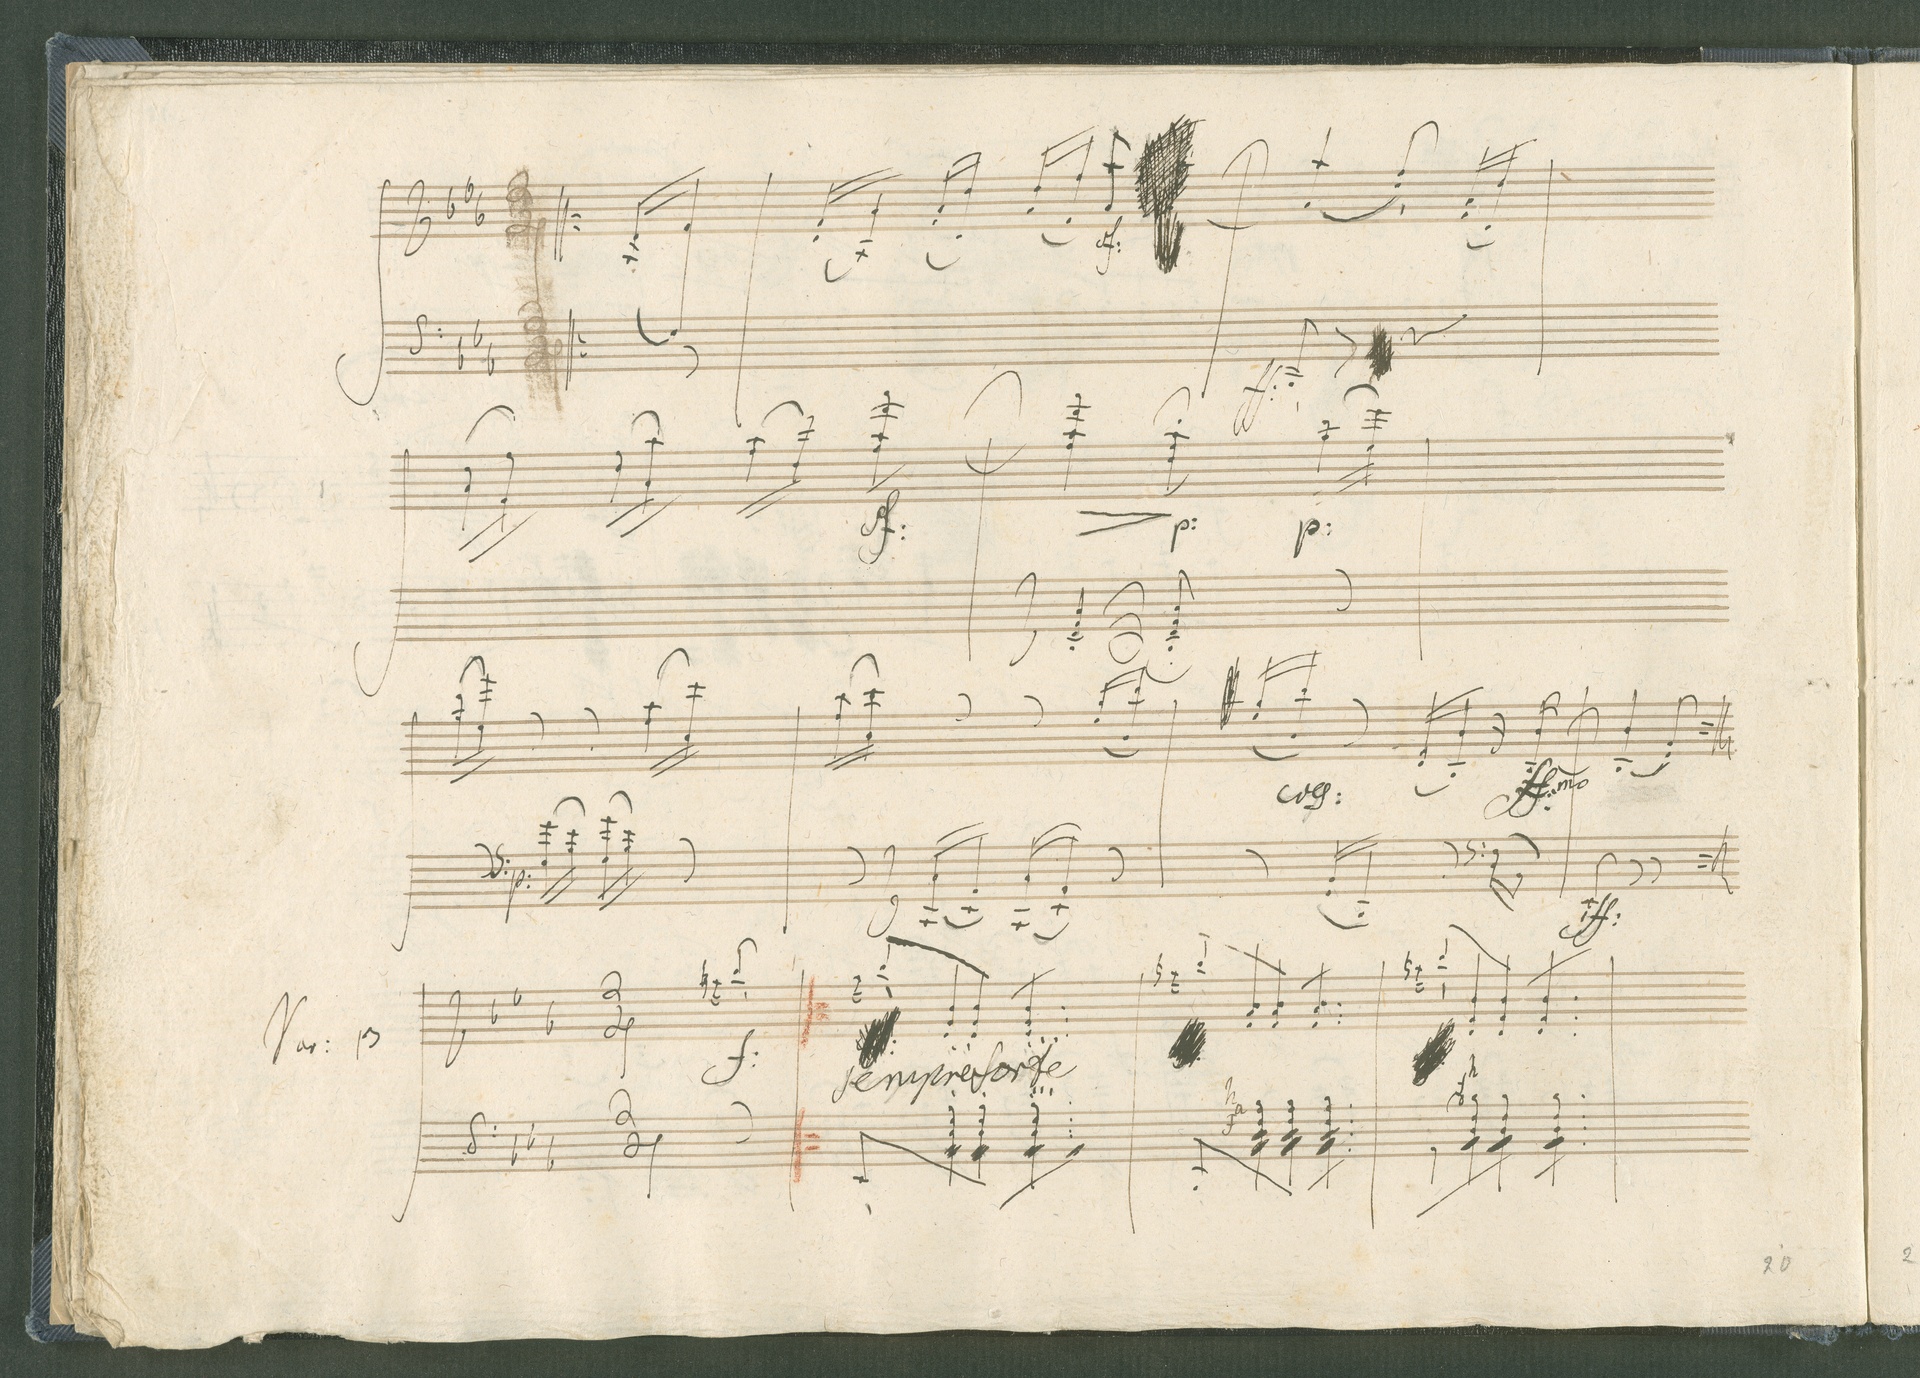 sf:
ff:
sf: p: p:
cresc:
ffmo
p:
ff:
Var: 13
f:
sempre forte
20
2